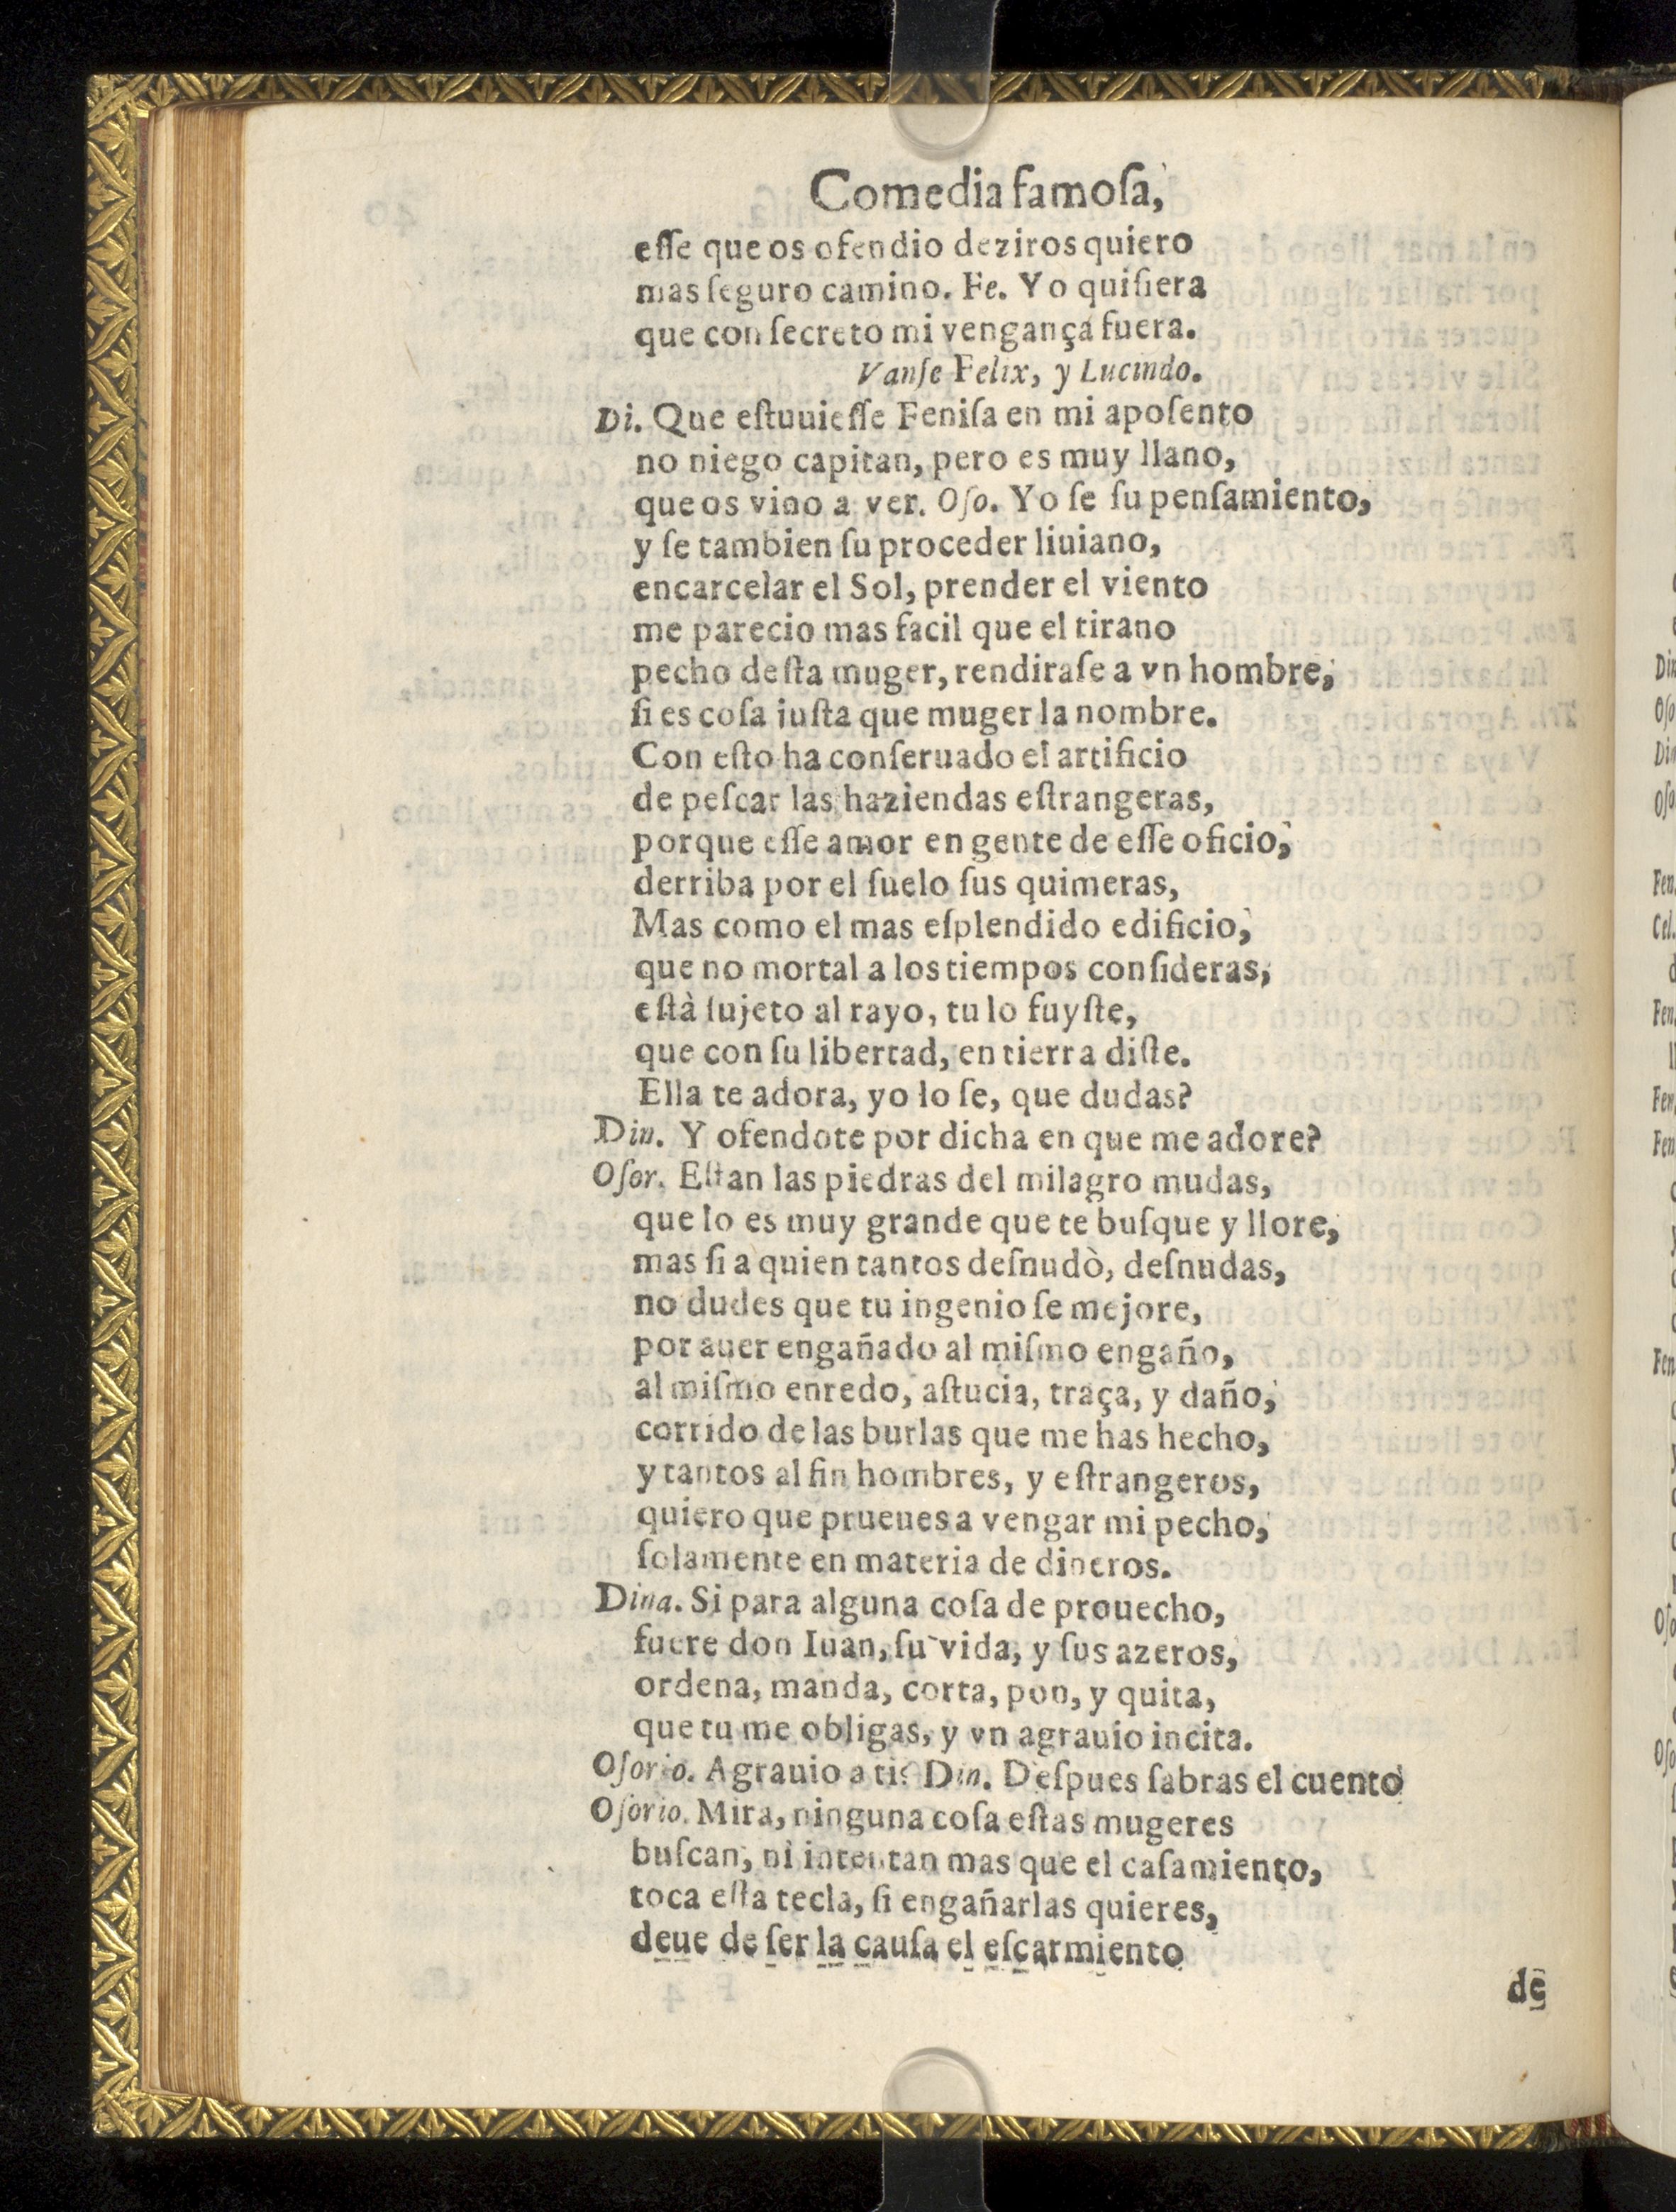 Comedia famoſa,
eſſe que os ofendio deziros quiero
mas ſeguro camino. Fe. Yo quiſiera
que con ſecreto mi vengança fuera.
Vanſe Felix, y Lucindo.
Di. Que eſtuuieſſe Feniſa en mi apoſento
no niego capitan, pero es muy llano,
que os vino a ver. Oſo. Yo ſe ſu penſamiento,
y ſe tambien ſu proceder liuiano,
encarcelar el Sol, prender el viento
me parecio mas facil que el tirano
pecho deſta muger, rendiraſe a vn hombre,
ſi es coſa iuſta que muger la nombre.
Con eſto ha conſeruado el artificio
de peſcar las haziendas eſtrangeras,
porque eſſe amor en gente de eſſe oficio,
derriba por el ſuelo ſus quimeras,
Mas como el mas eſplendido edificio,
que no mortal a los tiempos conſideras,
eſtà ſujeto al rayo, tu lo fuyſte,
que con ſu libertad, en tierra diſte.
Ella te adora, yo lo ſe, que dudas?
Din. Y ofendote por dicha en que me adore?
Oſor. Eſtan las piedras del milagro mudas,
que lo es muy grande que te buſque y llore,
mas ſi a quien tantos deſnudò, deſnudas,
no dudes que tu ingenio ſe mejore,
por auer engañado al miſmo engaño,
al miſmo enredo, aſtucia, traça, y daño,
corrido de las burlas que me has hecho,
y tantos al fin hombres, y eſtrangeros,
quiero que prueues a vengar mi pecho,
ſolamente en materia de dineros.
Dina. Si para alguna coſa de prouecho,
fuere don Iuan, ſu vida, y ſus azeros,
ordena, manda, corta, pon, y quita,
que tu me obligas, y vn agrauio incita.
Oſorio. Agrauio a ti? Din. Deſpues ſabras el cuento
Oſorio. Mira, ninguna coſa eſtas mugeres
buſcan, ni intentan mas que el caſamiento,
toca eſta tecla, ſi engañarlas quieres,
deue de ſer la cauſa el eſcarmiento
de